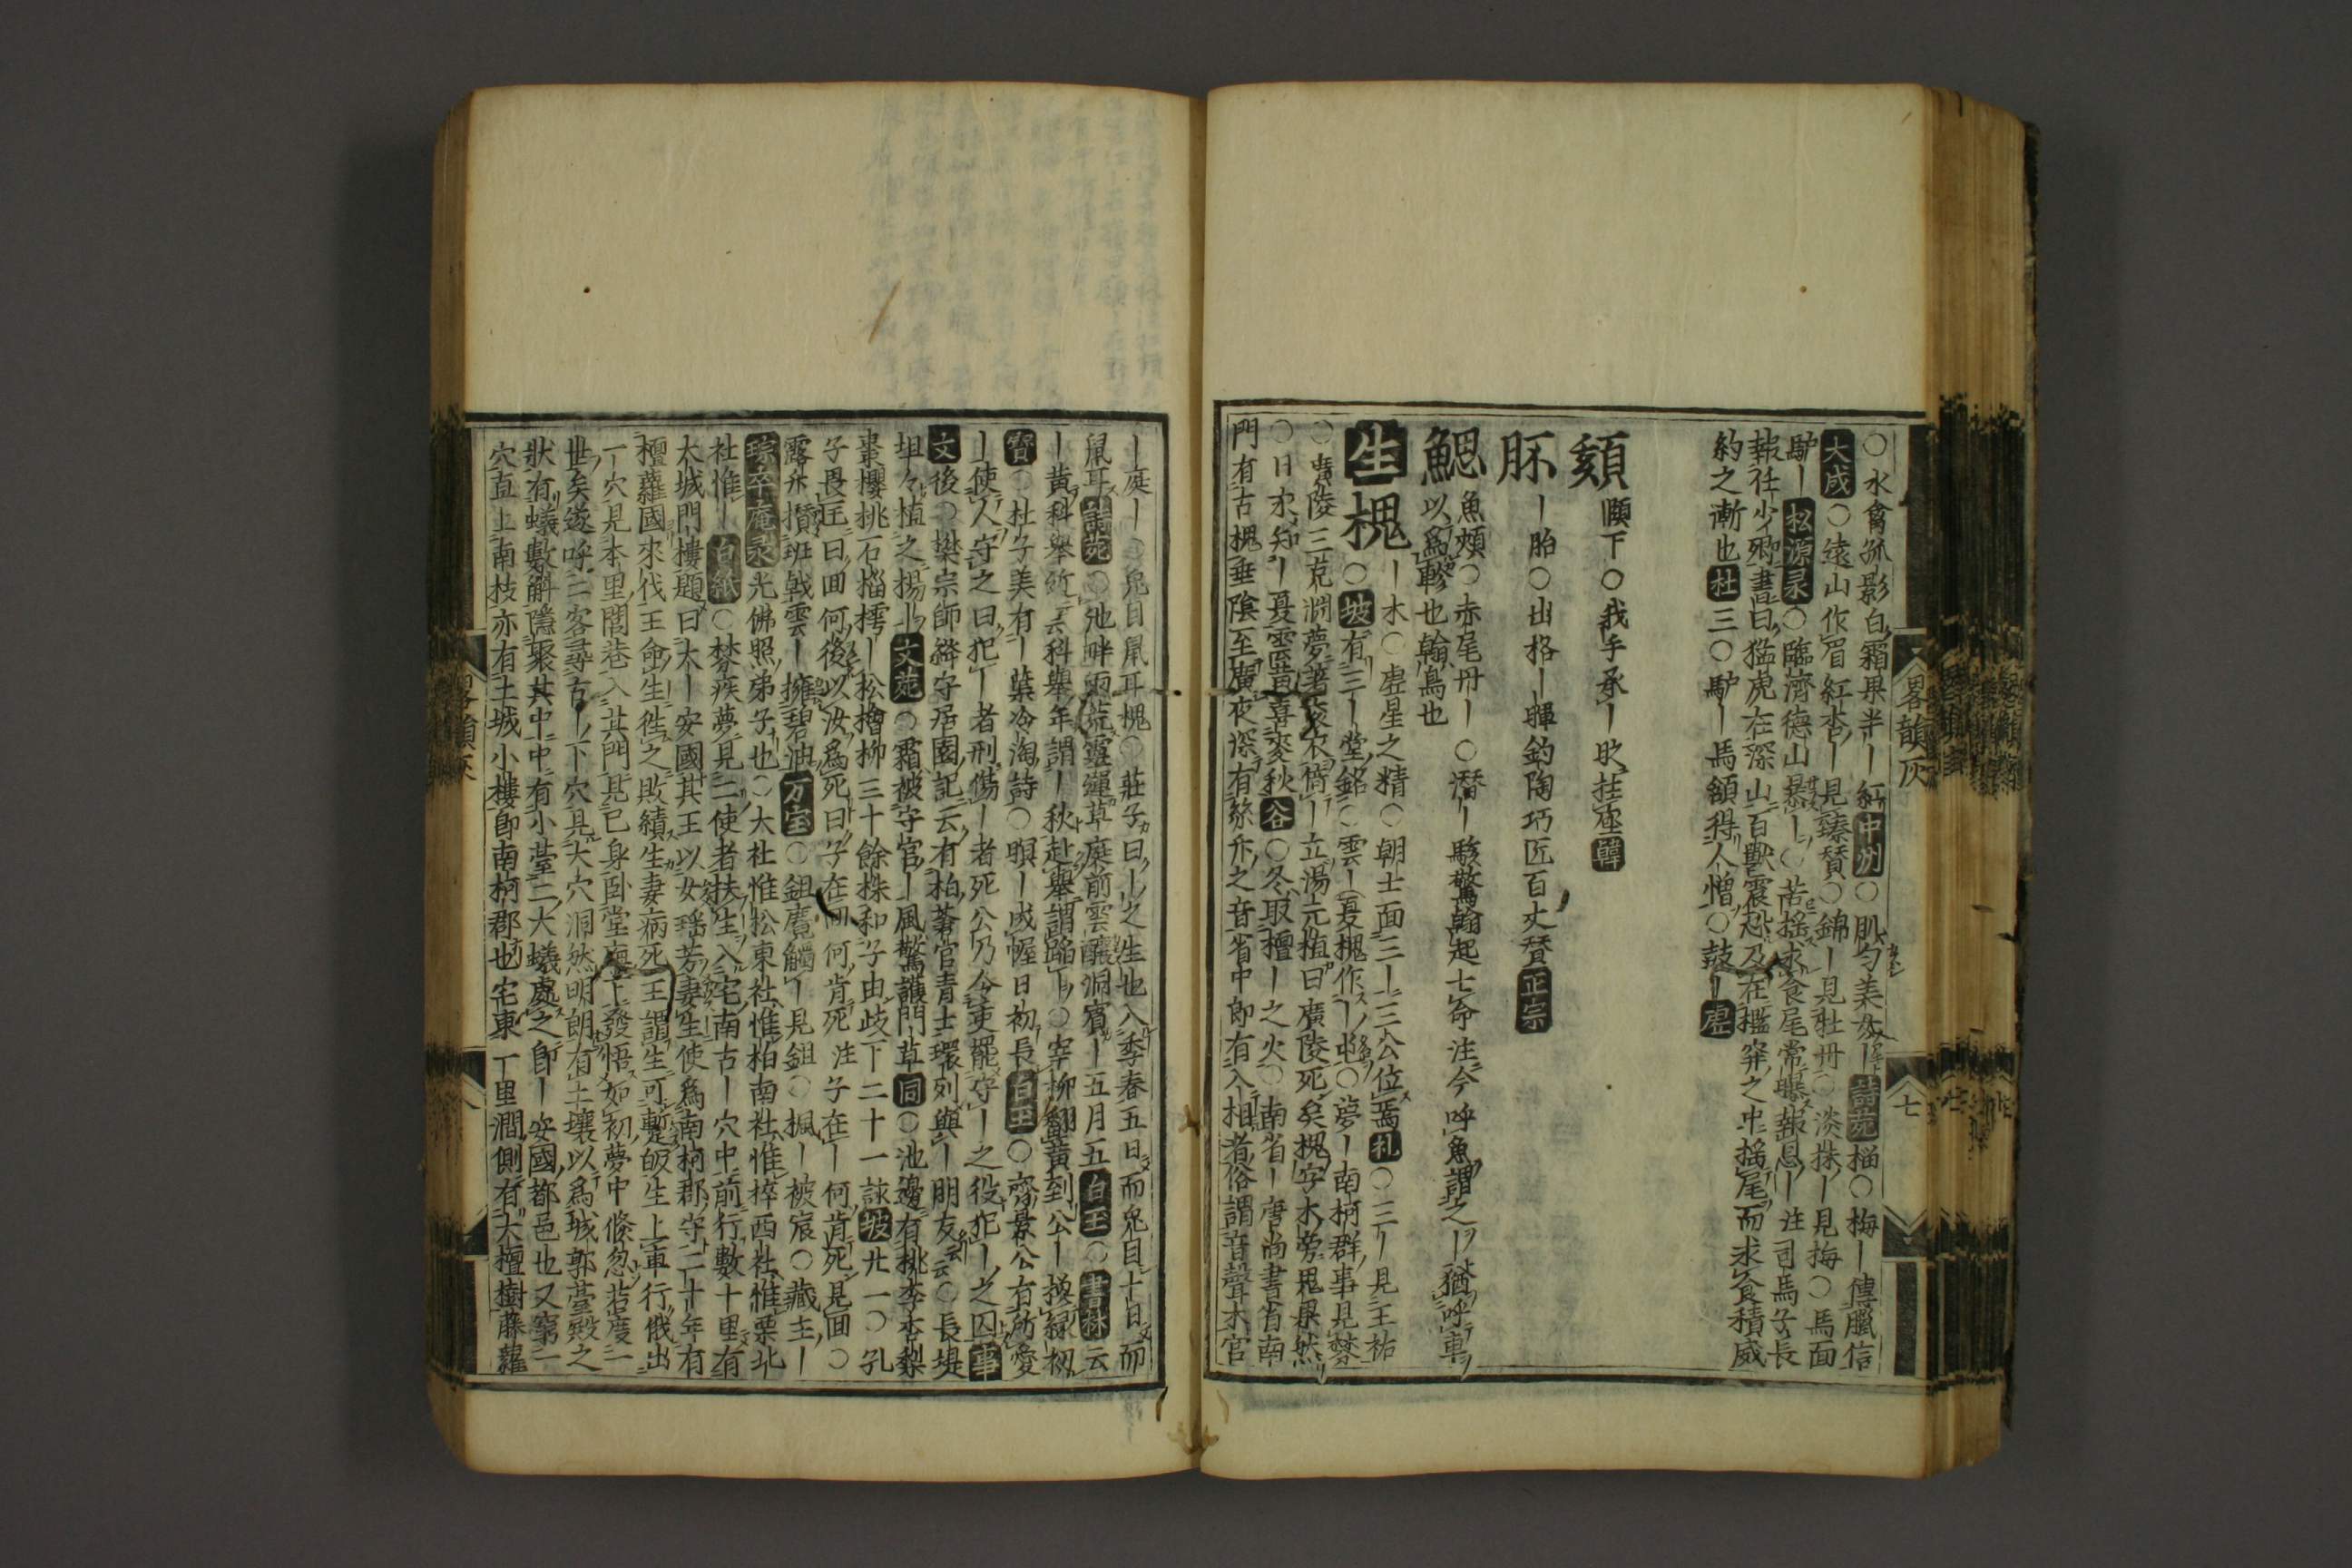 ○水禽孤影白霜果半｜紅中州○肌勻美女｜詩苑榴○梅｜傳臘信
大成○遠山作眉紅杏｜見臻賛○錦｜見牡丹○淡抹｜見梅○馬面
馿｜松源录○臨濟德山暴｜○苦搖求食尾常曝報恩｜注司馬子長
報任少卿書曰猛虎在深山百獸震恐及在檻穽之中搖尾而求食積威
約之漸也杜三○馿｜馬頷得人憎○鼓｜虚
頦頤下○我手承｜肬拄座韓
胚｜胎○出格｜暉鈞陶巧匠百丈賛正宗
鰓魚頰○赤尾丹｜○潛｜駭驚翰起七命注今呼魚謂之｜猶呼車
以爲轇也翰鳥也
生槐｜木○虚星之精○朝士面三｜三公位焉札○三｜見王祐
○坡有三｜堂銘○雲｜夏槐作｜○夢｜南柯群事見
○廣陵三克淵夢著衮衣倚｜立湯元植曰廣陵死矣槐字木旁鬼果然
○日永知｜夏雲晋喜麥秋谷○冬取檀｜之火○南省｜唐尚書省南
門有古槐垂陰至廣夜深有絲竹之音省中即有入相者俗謂音聲木官
畧韻灰
七
｜庭｜○兔目鼠耳槐○莊子曰｜之生也入季春五日而兔目十日而
鼠耳詩苑○池畔迺荒靈運草庭前雲釀洞賓｜五月五白玉○書林云
｜黃科舉竹云科舉年謂｜秋赴舉謂踏｜○宰柳飜黃到公｜挨綠初
寶○杜子美有｜葉冷淘詩○暝｜成幄日初長白玉○齊景公有所愛
｜使人守之曰犯｜者刑傷｜者死公乃令吏罷守｜之役犯｜之囚事
文後○樊宗師絳守居園記云有柏蒼官青士環列與｜朋友云○長堤
坦々植之揚｜文苑○霜被守官｜風驚護門草同○池邊有桃李杏梨
棗櫻挑石榴樗｜松檜柳三十餘株和子由歧下二十一詠坡廾一○孔
子畏匡曰回何後以汝爲死曰子在回何肯死注子在｜何肯死見回○
露廾攢班戟雲｜擁碧油万宝○鉏麑觸｜見鉏○楓｜被宸○藏主｜
琮卒庵录光佛照弟子也○大社惟松東社惟柏南社惟梓西社惟栗北
社惟｜白紙○棼疾夢見二使者扶生入宅南古｜穴中前行數十里有
大城門樓題曰大｜安國其王以女瑤芳妻生使爲南柯郡守二十年有
檀蘿國來伐王命生徃之敗績生妻病死王謂生可蹔皈生上車行俄出
一穴見本里閭巷入其門見已身卧堂廡下發悟如初夢中倏忽若度一
世矣遂呼二客尋古｜下穴見大穴洞然明朗有土壤以爲城郭臺殿之
狀有蟻數斛隱聚其中中有小臺二大蟻處之即｜安國都邑也又窮一
穴直上南枝亦有土城小樓即南柯郡也宅東一里澗側有大檀樹藤蘿
畧韻灰